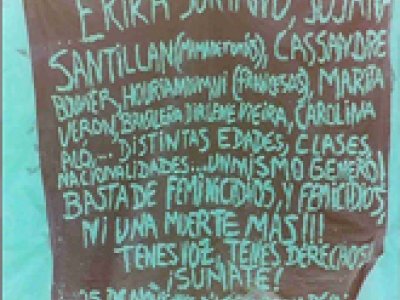 ERIKA SORIANO, SUSANA
SANTILLAN CASSANDRE
BOUVIER, HOURIA MOUMNI (FRANCESAS), MARITA
VERON, BRASILEÑA DIRLENE VIEIRA, CAROLINA
ALÓ,... DISTINTAS EDADES, CLASES,
NACIONALIDADES... UN MISMO GENERO!
BASTA DE FEMINICIDIOS, Y FEMICIDIOS,
NI UNA MUERTE MÁS!!!
TENES VOZ, TENES DERECHOS!
¡SUMATE!
25 DE